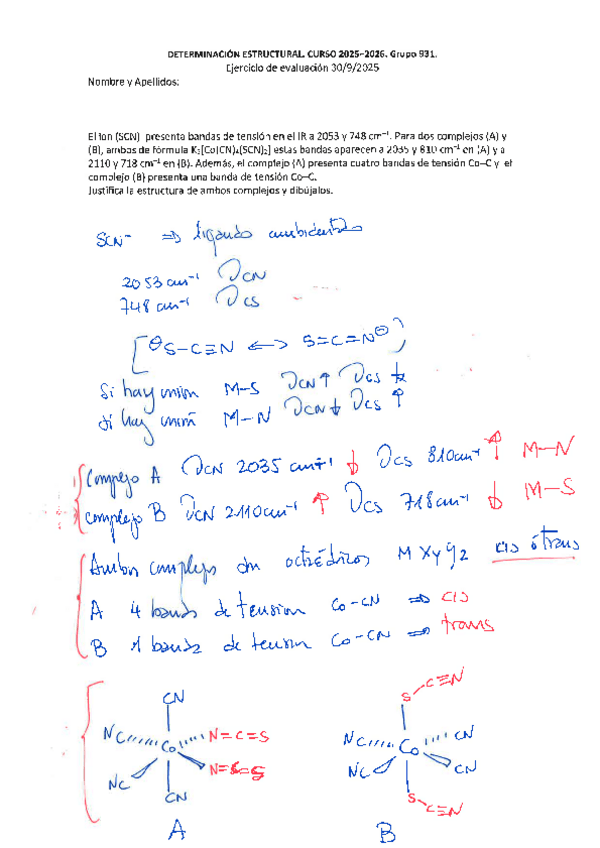 DETERMINACIÓN ESTRUCTURAL. CURSO 2025–2026. Grupo 931.
Ejercicio de evaluación 30/9/2025
Nombre y Apellidos:
El ion (SCN)⁻ presenta bandas de tensión en el IR a 2053 y 748 cm⁻¹. Para dos complejos (A) y
(B), ambos de fórmula K₃[Co(CN)₄(SCN)₂] estas bandas aparecen a 2035 y 810 cm⁻¹ en (A) y a
2110 y 718 cm⁻¹ en (B). Además, el complejo (A) presenta cuatro bandas de tensión Co–C y el
complejo (B) presenta una banda de tensión Co–C.
Justifica la estructura de ambos complejos y dibújalos.
SCN⁻ ⇒ ligando ambidentado
2053 cm⁻¹ νCN
748 cm⁻¹ νCS
[⊖S–C≡N ⟷ S=C=N⊖]
Si hay unión M–S νCN↑ νCS ↓
Si hay unión M–N νCN↓ νCS ↑
Complejo A νCN 2035 cm⁻¹ ↓ νCS 810cm⁻¹ ↑ M–N
complejo B νCN 2110cm⁻¹ ↑ νCS 718cm⁻¹ ↓ M–S
Ambos complejos son octaédricos MX₄Y₂ cis ó trans
A 4 bandas de tension Co–CN ⇒ cis
B 1 banda de tension Co–CN ⇒ trans
CN
NC Co N=C=S
NC N=C=S
CN
A
S–C≡N
NC Co CN
NC CN
S–C≡N
B